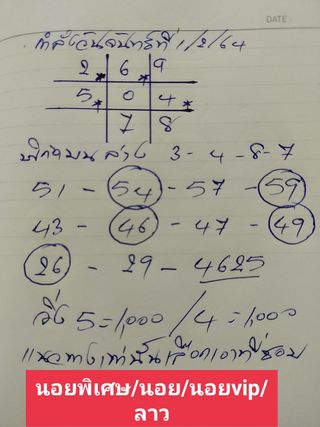 DATE :
กำลังวันจันทร์ที่ 1/2/64
2 * 6 * 9
5 * 0 4 *
7 8
บน ล่าง 3 - 4 - 8 - 7
51 - 54 - 57 - 59
43 - 46 - 47 - 49
26 - 29 - 4625
วิ่ง 5 = 1,000 / 4 = 1,000
แนวทางเท่านั้นเลือกเอาที่ชอบ
นอยพิเศษ/นอย/นอยvip/
ลาว